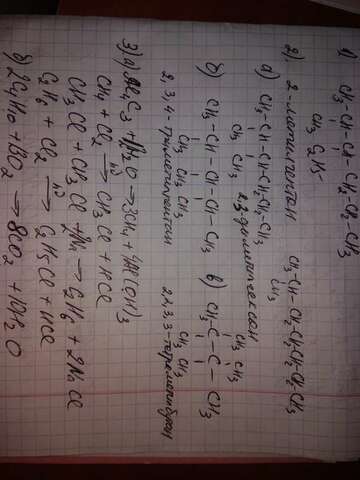 1) CH3-CH-CH-CH2-CH2-CH3
CH3 C2H5
2) 2-метилпентан CH3-CH-CH2-CH2-CH2-CH2-CH3
CH3
а) CH3-CH-CH-CH2-CH2-CH3
CH3 CH3 2,3-диметилгексан
б) CH3-CH-CH-CH-CH3 в) CH3-C-C-CH3
CH3 CH3 CH3
CH3 CH3
CH3 CH3
2,3,4-триметилпентан 2,2,3,3-тетраметилбутан
3) а) Al4C3 + 12H2O → 3CH4 + 4Al(OH)3
CH4 + Cl2 → CH3Cl + HCl
CH3Cl + CH3Cl + 2Na → C2H6 + 2NaCl
C2H6 + Cl2 → C2H5Cl + HCl
б) 2C4H10 + 13O2 → 8CO2 + 10H2O